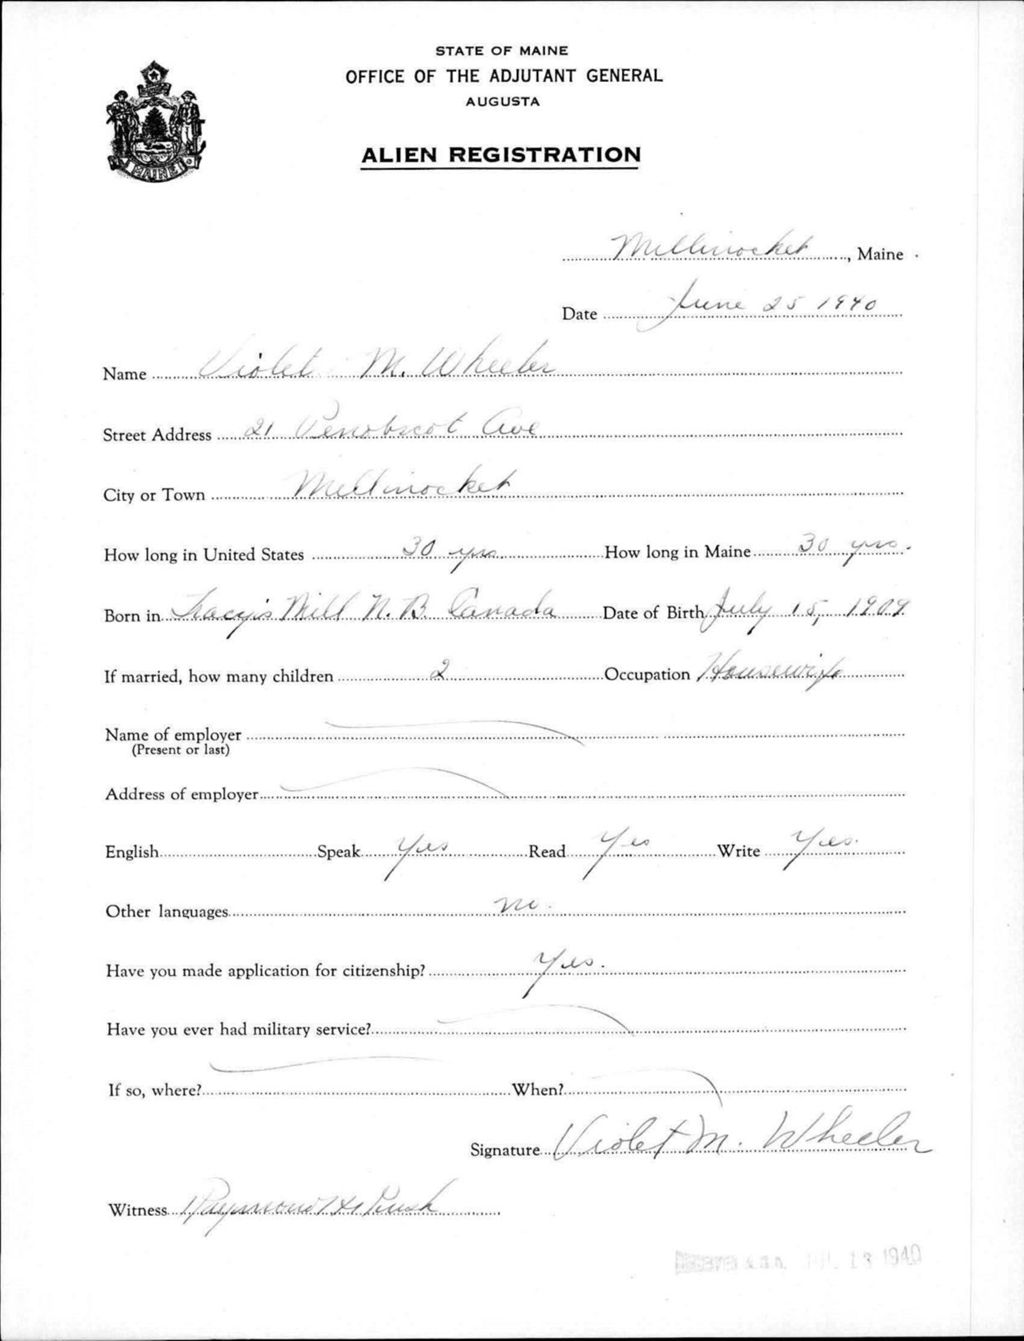 STATE OF MAINE
OFFICE OF THE ADJUTANT GENERAL
AUGUSTA
ALIEN REGISTRATION
MAINE
Millinocket, Maine
Date June 25 1940
Name Violet M. Wheeler
Street Address 21 Penobscot Ave
City or Town Millinocket
How long in United States 30 yrs. How long in Maine 30 yrs.
Born in Tracy's Mill N. B. Canada Date of Birth July 15, 1909
If married, how many children 2 Occupation Housewife
Name of employer
(Present or last)
Address of employer
English Speak Yes Read Yes Write Yes.
Other languages no.
Have you made application for citizenship? Yes.
Have you ever had military service?
If so, where? When?
Signature Violet M. Wheeler
Witness Raymond H. Rush
RECEIVED A.G.O. 13 1940